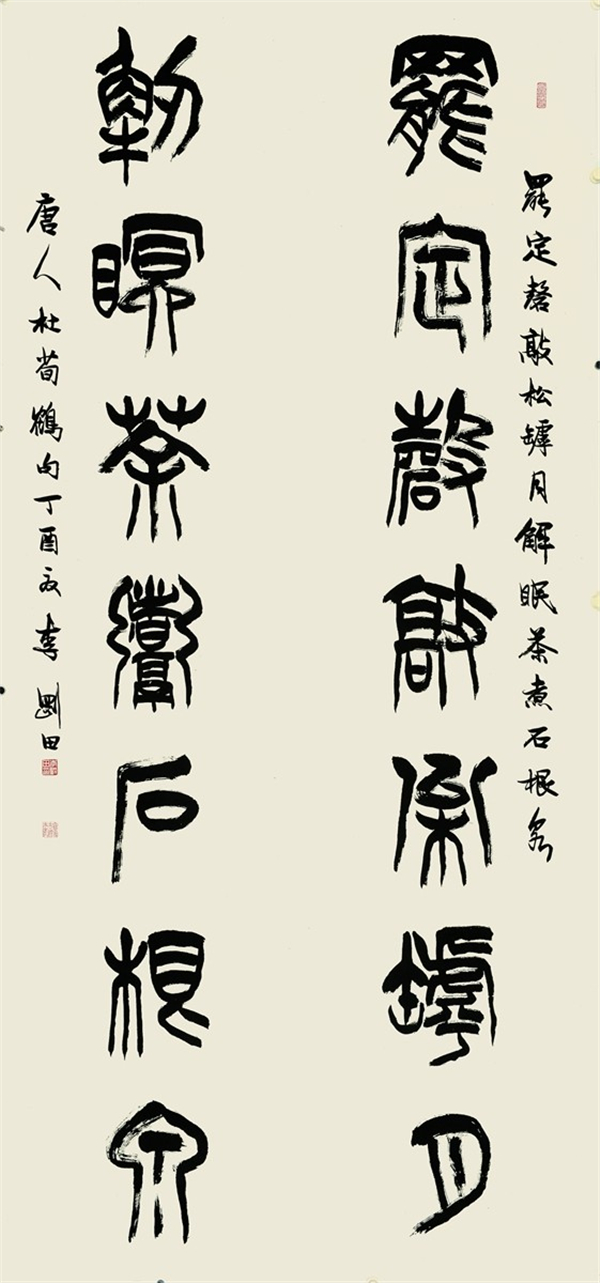 罷定磬敲松罅月解眠茶煮石根泉
罷定磬敲松罅月
解眠茶煮石根泉
唐人杜荀鶴句丁酉夏李剛田